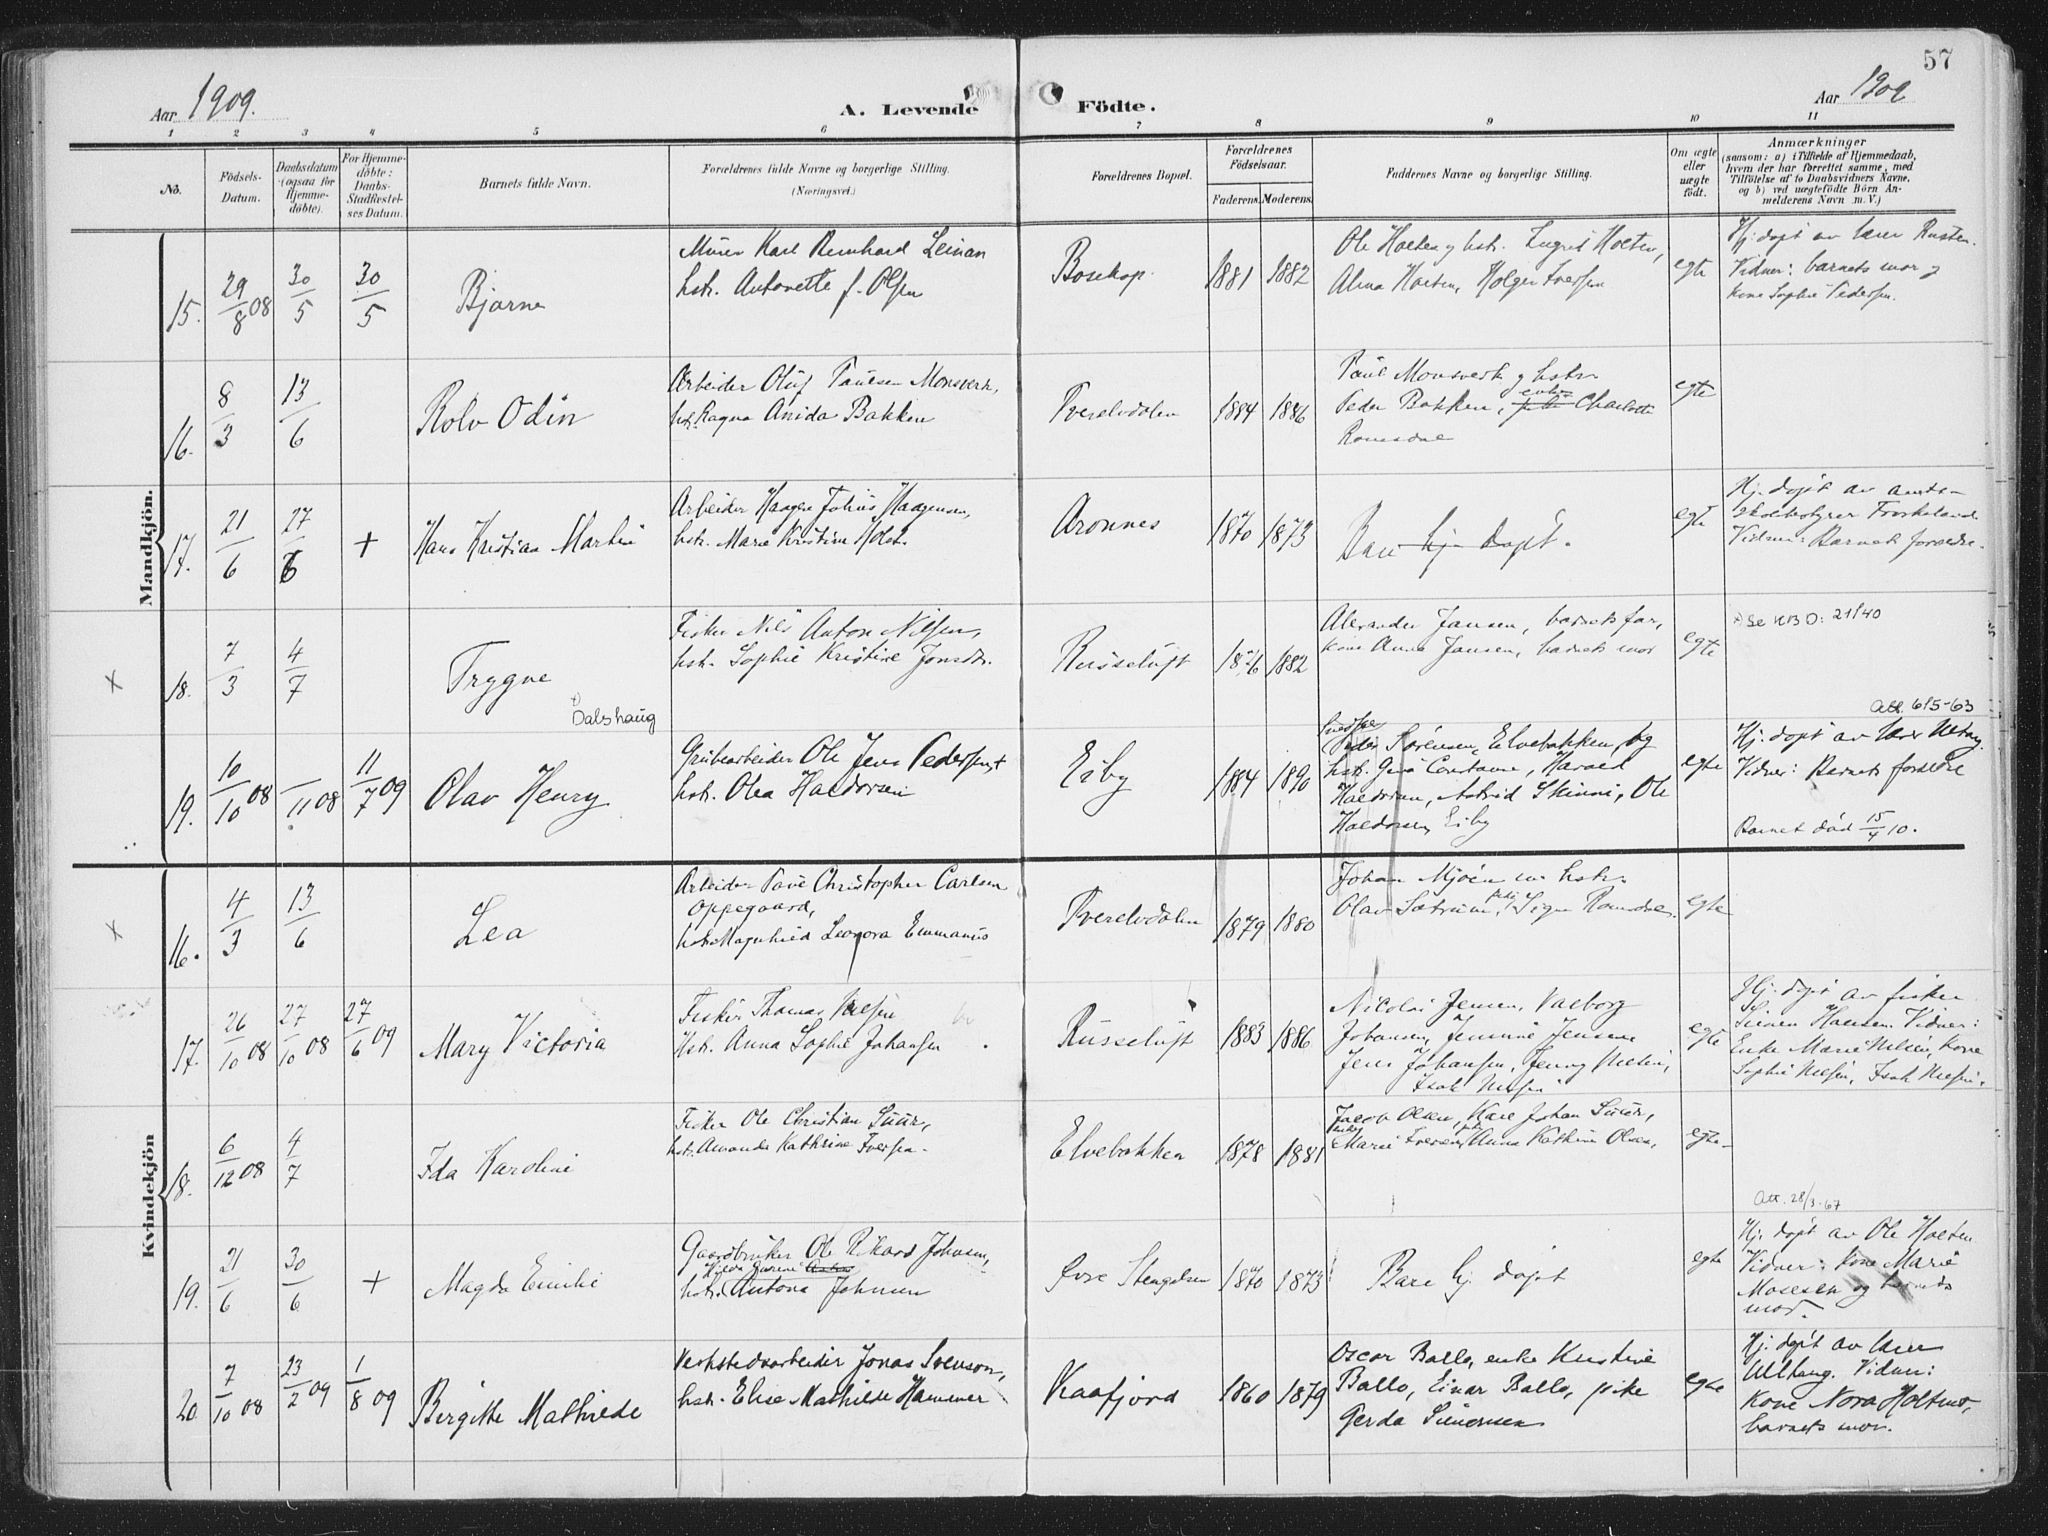 57
Aar 1909.
A. Levende Födte.
Aar 1909
1 2 3 4 5 6 7 8 9 10 11
No.
Födsels-Datum.
Daabsdatum (ogsaa for Hjemme-döbte).
For Hjemme-döbte: Daabs-Stadfæstel-ses Datum.
Barnets fulde Navn.
Forældrenes fulde Navne og borgerlige Stilling. (Næringsvei.)
Forældrenes Bopæl.
Forældrenes Födselsaar.
Faderens. Moderens.
Faddernes Navne og borgerlige Stilling.
Om ægte eller uægte födt.
Anmærkninger
(saasom: a) i Tilfælde af Hjemmedaab,
hvem der har forrettet samme, med
Tilföielse af to Daabsvidners Navne,
og b) ved uægtefödte Börn An-
melderens Navn m. V.)
Mandkjön.
15. 29/8 08 30/5 30/5 Bjarne
Murer Karl Reinhard Leinan
hstr. Antonette f. Olsen
Bosekop 1881 1882
Ole Holten og hstr. Ingris Holten,
Alma Holten, Holger Iversen
egte
Hj. døpt av lærer Rusten.
Vidner: barnets mor og
kone Sophie Pedersen.
16. 8/3 13/6 Rolv Odin
Arbeider Oluf Paulsen Monsverk,
hstr. Ragna Anida Bakken
Tverelvdalen 1884 1886
Paul Monsverk og hstr.
Peder Bakken, enke Charlotte
Romsdal
egte
17. 21/6 27/6 + Hans Kristian Martin
Arbeider Haagen Johns Haagensen,
hstr. Marie Kristine Holst.
Aronnes 1870 1873
Bare hj. døpt.
egte
Hj. døpt av amts-
skolebestyrer Froskeland
Vidner: Barnets forældre.
x 18. 7/3 4/7 Trygve
Dalshaug
Fisker Nils Anton Nilsen,
hstr. Sophie Kristine Jonsdtr.
Russeluft 1882
Alexander Jansen, barnets far,
kone Anna Jansen, barnets mor
egte
Se KBD: 21/40
Att. 6/5-63
19. 10/10 08 /11 08 11/7 09 Olav Henry
Grubearbeider Ole Jens Pedersen,
hstr. Olea Haldorsen
Eiby 1884 1890
Peder Sørensen, Elvebakken, og
hstr. Gina Constanse, Harald
Haldorsen, Astrid Skinni, Ole
Haldorsen, Eiby
egte
Hj. døpt av lærer Ultang.
Vidner: Barnets forældre
Barnet død 15/4 10.
Kvindekjön
x 16. 4/3 13/6 Lea
Arbeider Paul Christopher Carlsen
Oppegaard,
hstr. Magnhild Leonora Emmanus
Tverelvdalen 1879 1880
Johan Mjøen m. hstr.
Olav Sætrum, pike Signe Romsdal.
egte
17. 26/10 08 27/10 08 27/6 09 Mary Victoria
Fisker Thomas Nilsen
Hstr. Anna Sophie Johansen
Russeluft 1883 1886
Nicolai Jensen, Valborg
Johansen, Jensine Jensen
Jens Johansen, Jenny Nilsen,
Isak Nilsen
egte
Hj. døpt av fisker
Simen Hansen. Vidner:
Enke Marie Nilsen, kone
Sophie Nilsen, Isak Nilsen.
18. 6/12 08 4/7 Ida Karoline
Fisker Ole Christian Suur,
hstr. Amanda Kathrine Iversen.
Elvebakken 1878 1881
Jacob Olsen, Karl Johan Suur,
Marie Iversen, Anna Kathrine Olsen.
egte.
Att. 28/3-67
19. 21/6 30/6 + Magda Emilie
Gaardbruker Ole Rikard Johnsen,
hstr. Antona Johnsen
Øvre Stengelsen 1870 1873
Bare hj. døpt
egte
Hj. døpt av Ole Holten
Vidner: kone Marie
Mosesen og barnets
mor.
20. 7/10 08 23/2 09 1/8 09 Birgitte Mathilde
Verkstedsarbeider Jonas Svenson,
hstr. Elise Mathilde Hammer
Kaafjord 1860 1879
Oscar Ballo, enke Kristine
Ballo, Einar Ballo, pike
Gerda Simonsen
egte
Hj. døpt av lærer
Ultang. Vidner:
Kone Nora Holtmo,
barnets mor.